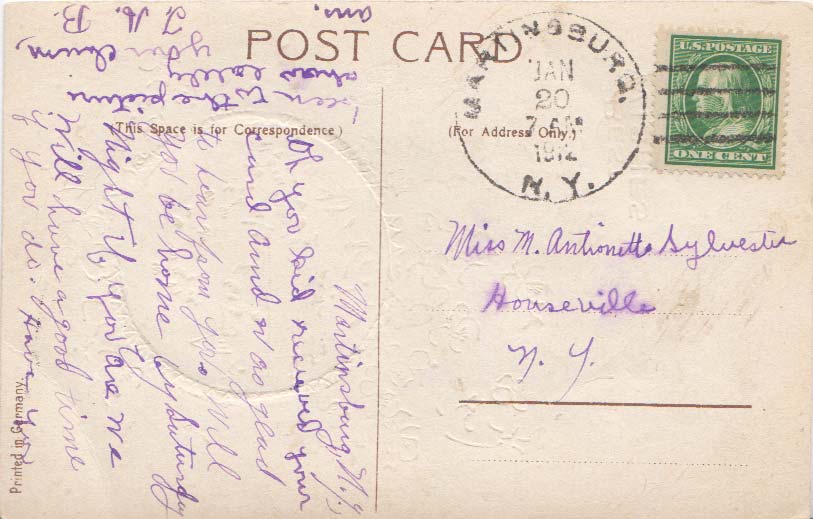 POST CARD
(This Space is for Correspondence)
(For Address Only.)
MARTINSBURG.
JAN
20
7 AM
1912
N. Y.
U.S. POSTAGE
ONE CENT
Miss M. Antionette Sylvester
Houseville
N. Y.
Martinsburg, N.Y.
Oh you kid recieved your
card and was glad
to hear from you. Will
you be home by Saturday
Night if you are we
will have a good time
if you do. Have you
been to the picture
show lately
your chum,
F. A. B.
ans.
Printed in Germany.